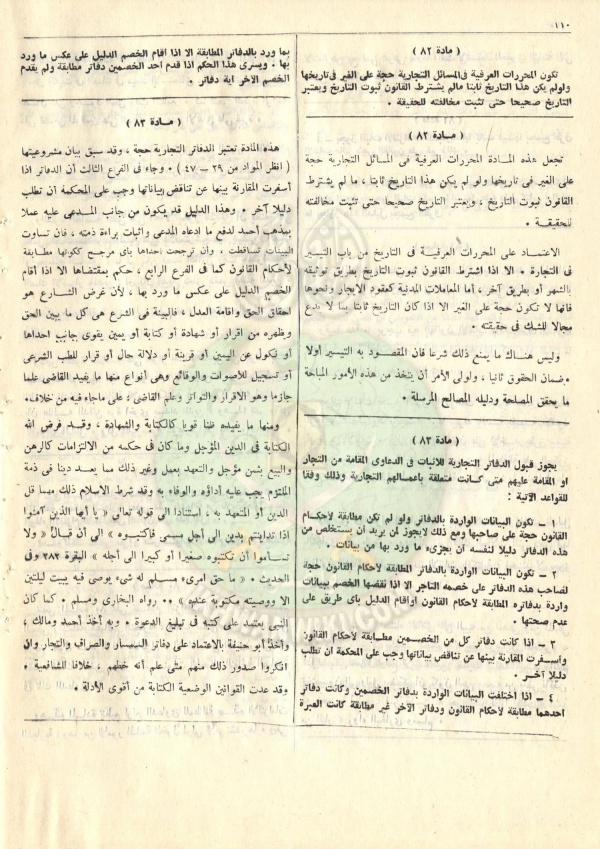 ١١٠
( مادة ٨٢ )
تكون المحررات العرفية في المسائل التجارية حجة على الغير في تاريخها
ولولم يكن هذا التاريخ ثابتا مالم يشترط القانون ثبوت التاريخ ويعتبر
التاريخ صحيحا حتى تثبت مخالفته للحقيقة .
( مادة ٨٢ )
تجعل هذه المادة المحررات العرفية في المسائل التجارية حجة
على الغير في تاريخها ولو لم يكن هذا التاريخ ثابتا ، ما لم يشترط
القانون ثبوت التاريخ ، ويعتبر التاريخ صحيحا حتى تثبت مخالفته
للحقيقة .
الاعتماد على المحررات العرفية في التاريخ من باب التيسير
في التجارة . الا اذا اشترط القانون ثبوت التاريخ بطريق توثيقه
بالشهر أو بطريق آخر ، أما المعاملات المدنية كعقود الايجار ونحوها
فانها لا تكون حجة على الغير الا اذا كان التاريخ ثابتا بما لا يدع
مجالا للشك في حقيقته .
وليس هناك ما يمنع ذلك شرعا فان المقصود به التيسير اولا
، ضمان الحقوق ثانيا ، ولولى الأمر أن يتخذ من هذه الأمور المباحة
ما يحقق المصلحة ودليله المصالح المرسلة .
( مادة ٨٣ )
يجوز قبول الدفاتر التجارية للاثبات في الدعاوى المقامة من التجار
او المقامة عليهم متى كانت متعلقة بأعمالهم التجارية وذلك وفقا
للقواعد الآتية :
١ – تكون البيانات الواردة بالدفاتر ولو لم تكن مطابقة لأحكام
القانون حجة على صاحبها ومع ذلك لايجوز لمن يريد ان يستخلص من
هذه الدفاتر دليلا لنفسه ان يجزىء ما ورد بها من بيانات .
٢ – تكون البيانات الواردة بالدفاتر المطابقة لأحكام القانون حجة
لصاحب هذه الدفاتر على خصمه التاجر الا اذا نقضها الخصم ببيانات
واردة بدفاتره المطابقة لأحكام القانون اوأقام الدليل بأى طريق على
عدم صحتها .
٣ – اذا كانت دفاتر كل من الخصمين مطابقة لأحكام القانون
واسفرت المقارنة بينها عن تناقض بياناتها وجب على المحكمة ان تطلب
دليلا آخر .
٤ – اذا اختلفت البيانات الواردة بدفاتر الخصمين وكانت دفاتر
احدهما مطابقة لأحكام القانون ودفاتر الآخر غير مطابقة كانت العبرة
بما ورد بالدفاتر المطابقة الا اذا أقام الخصم الدليل على عكس ما ورد
بها . ويسرى هذا الحكم اذا قدم احد الخصمين دفاتر مطابقة ولم يقدم
الخصم الآخر اية دفاتر .
( مادة ٨٣ )
هذه المادة تعتبر الدفاتر التجارية حجة ، وقد سبق بيان مشروعيتها
( انظر المواد من ٢٩ – ٤٧ ) . وجاء في الفرع الثالث أن الدفاتر اذا
أسفرت المقارنة بينها عن تناقض بياناتها وجب على المحكمة ان تطلب
دليلا آخر . وهذا الدليل قد يكون من جانب المدعى عليه عملا
بمذهب أحمد لدفع ما ادعاه المدعى واثبات براءة ذمته ، فان تساوت
البينات تساقطت . وان ترجحت احداها بأى مرجح ككونها مطابقة
لأحكام القانون كما في الفرع الرابع ، حكم بمقتضاها الا اذا أقام
الخصم الدليل على عكس ما ورد بها ، لأن غرض الشارع هو
احقاق الحق واقامة العدل ، فالبينة في الشرع هى كل ما يبين الحق
ويظهره من اقرار أو شهادة أو كتابة أو يمين يقوى جانب احداها
أو نكول عن اليمين أو قرينة أو دلالة حال أو قرار للطب الشرعى
أو تسجيل للأصوات والوقائع وهى أنواع منها ما يفيد القاضى علما
جازما وهو الاقرار والتواتر وعلم القاضى ، على ماجاء فيه من خلاف .
ومنها ما يفيده ظنا قويا كالكتابة والشهادة ، وقد فرض الله
الكتابة في الدين المؤجل وما كان في حكمه من الالتزامات كالرهن
والبيع بثمن مؤجل والتعهد بعمل وغير ذلك مما يعد دينا في ذمة
الملتزم يجب عليه أداؤه والوفاء به وقد شرط الاسلام ذلك مهما قل
الدين أو المتعهد به ، استنادا الى قوله تعالى « يا أيها الذين آمنوا
اذا تداينتم بدين الى أجل مسمى فاكتبوه » الى أن قال « ولا
تسأموا أن تكتبوه صغيرا أو كبيرا الى أجله » البقرة ٢٨٢ وفى
الحديث . « ما حق امرىء مسلم له شىء يوصى فيه يبيت ليلتين
الا ووصيته مكتوبة عنده » .. رواه البخارى ومسلم . كما كان
النبى يعتمد على كتبه في تبليغ الدعوة . وبه أخذ أحمد ومالك ،
وأخذ أبو حنيفة بالاعتماد على دفاتر السمسار والصراف والتجار وان
انكروا صدور ذلك منهم متى علم أنه خطهم ، خلافا للشافعية .
وقد عدت القوانين الوضعية الكتابة من أقوى الأدلة .